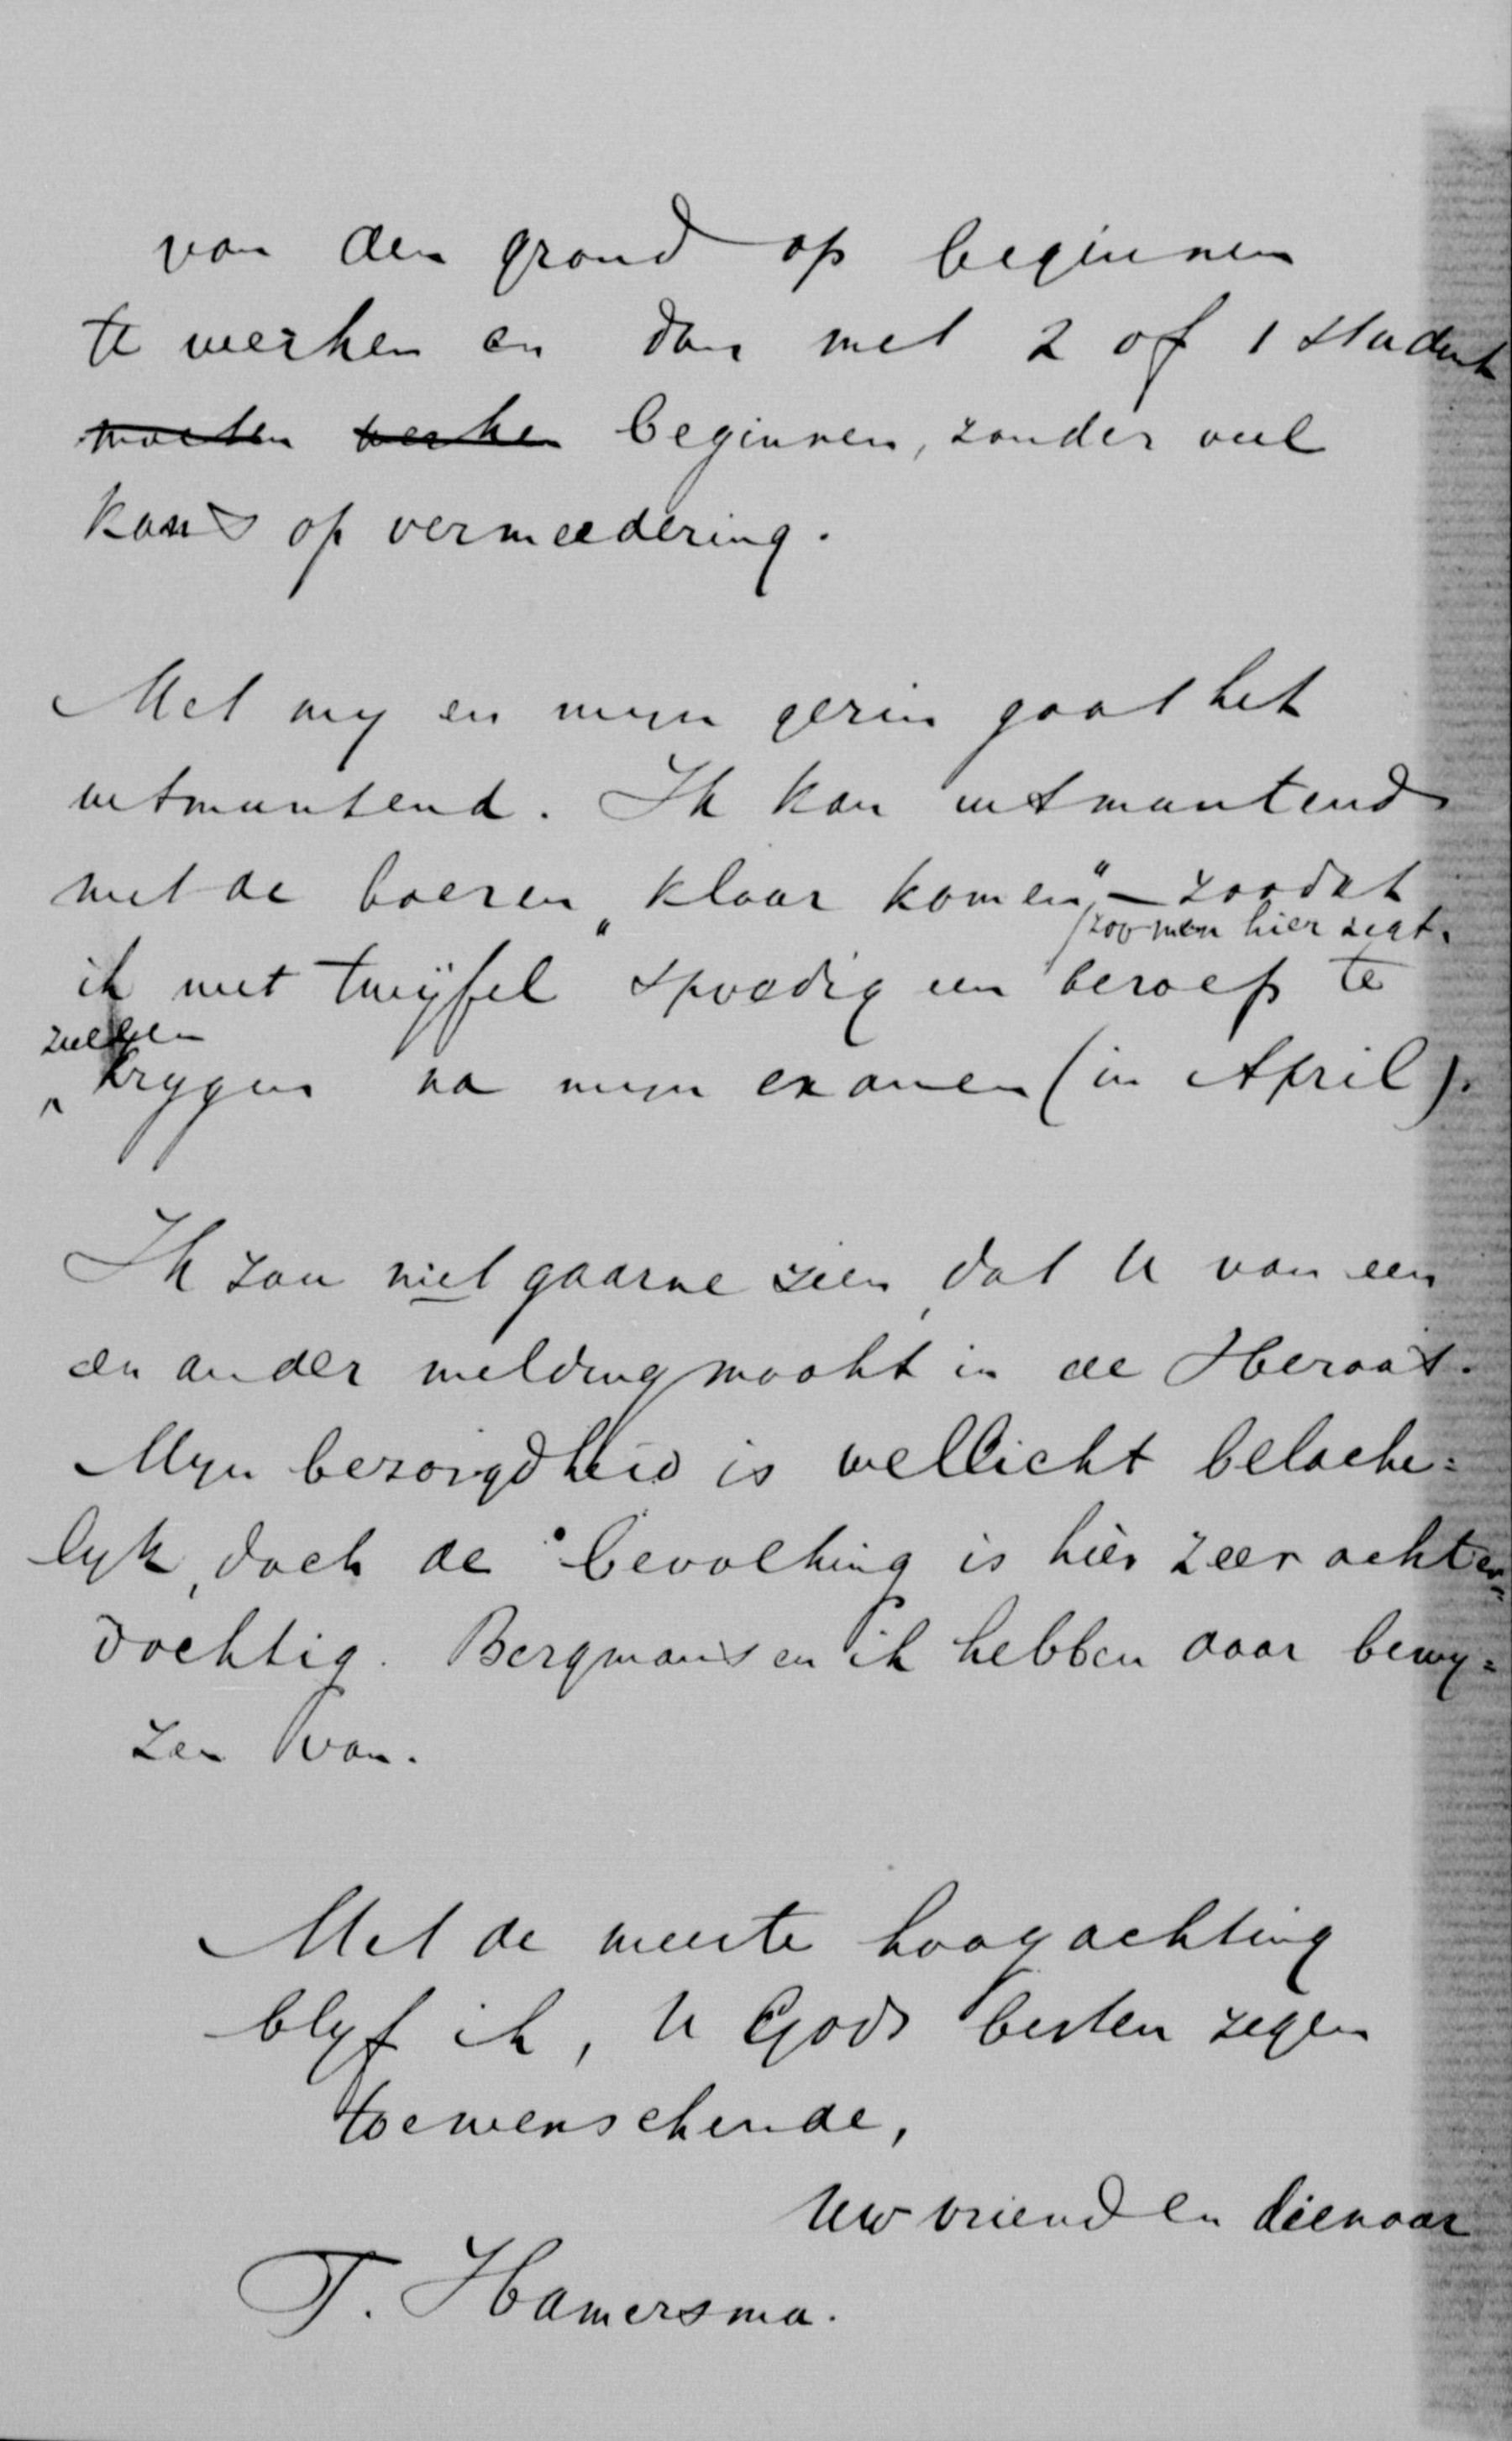 van den grond op beginnen
te werken en dan met 2 of 1 student
moeten werken beginnen, zonder veel
kans op vermeedering.
Met my en myn gezin gaat het
uitmuntend. Ik kan uitmuntend
met de boeren „klaar komen" – zoodat
/zoo men hier zegt.
ik niet twijfel spoedig een beroep te
zullen
krygen na myn examen (in April).
Ik zou niet gaarne zien, dat U van een
en ander melding maakt in de Heraut.
Myn bezorgdheid is wellicht belache=
lyk, doch de bevolking is hier zeer achter=
dochtig. Bergmans en ik hebben daar bewy=
zen van.
Met de meeste hoogachting
blyf ik, U Gods besten zegen
toewenschende,
Uw vriend en dienaar
T. Hamersma.